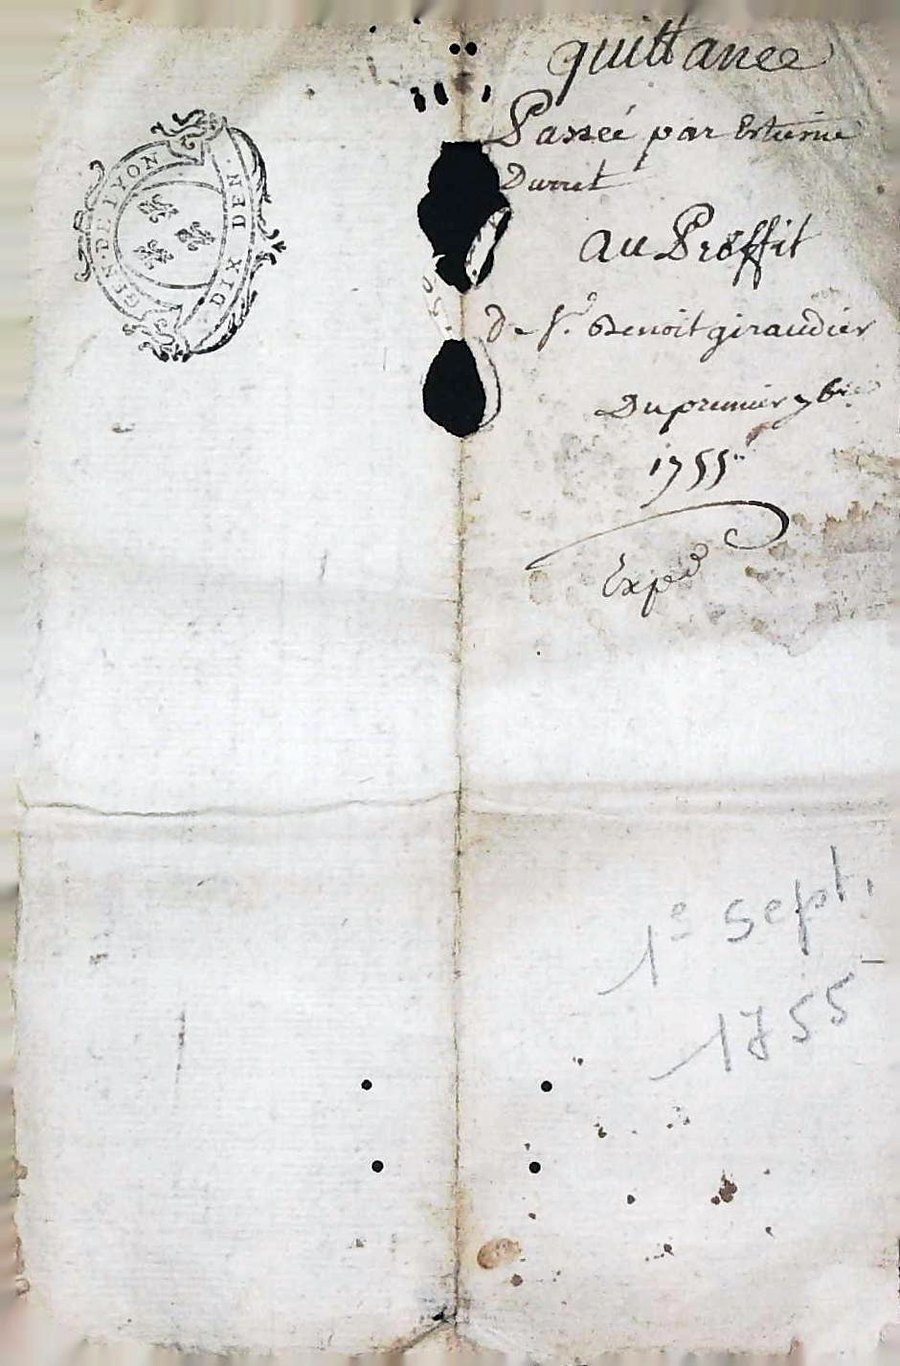 GEN·DE LYON
DIX DEN·
quittance
Passée par Estienne
Durret
au Proffit
De Sr. Benoit giraudier
Du premier 7bre
1755
Expd
1e sept.
1755